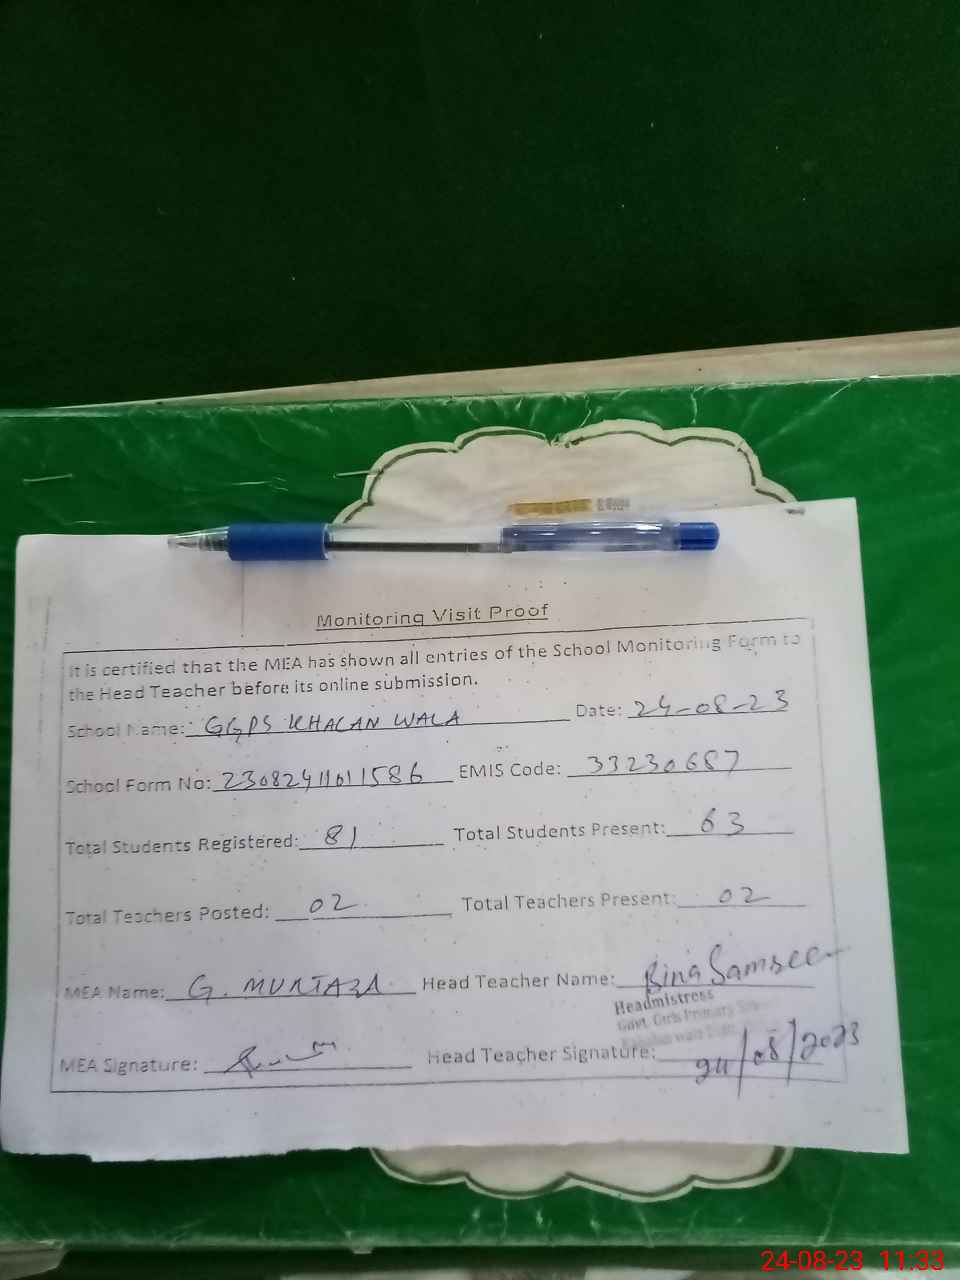 Monitoring Visit Proof
It is certified that the MEA has shown all entries of the School Monitoring Form to
the Head Teacher before its online submission.
School Name: GGPS KHALAN WALA Date: 24-08-23
School Form No: 23082411011586 EMIS Code: 33230687
Total Students Registered: 81 Total Students Present: 63
Total Teachers Posted: 02 Total Teachers Present: 02
MEA Name: G. MURTAZA Head Teacher Name: Bina
Headmistress
Govt. Girls Primary
MEA Signature: Head Teacher Signature: 24/08/2023
24-08-23 11:33